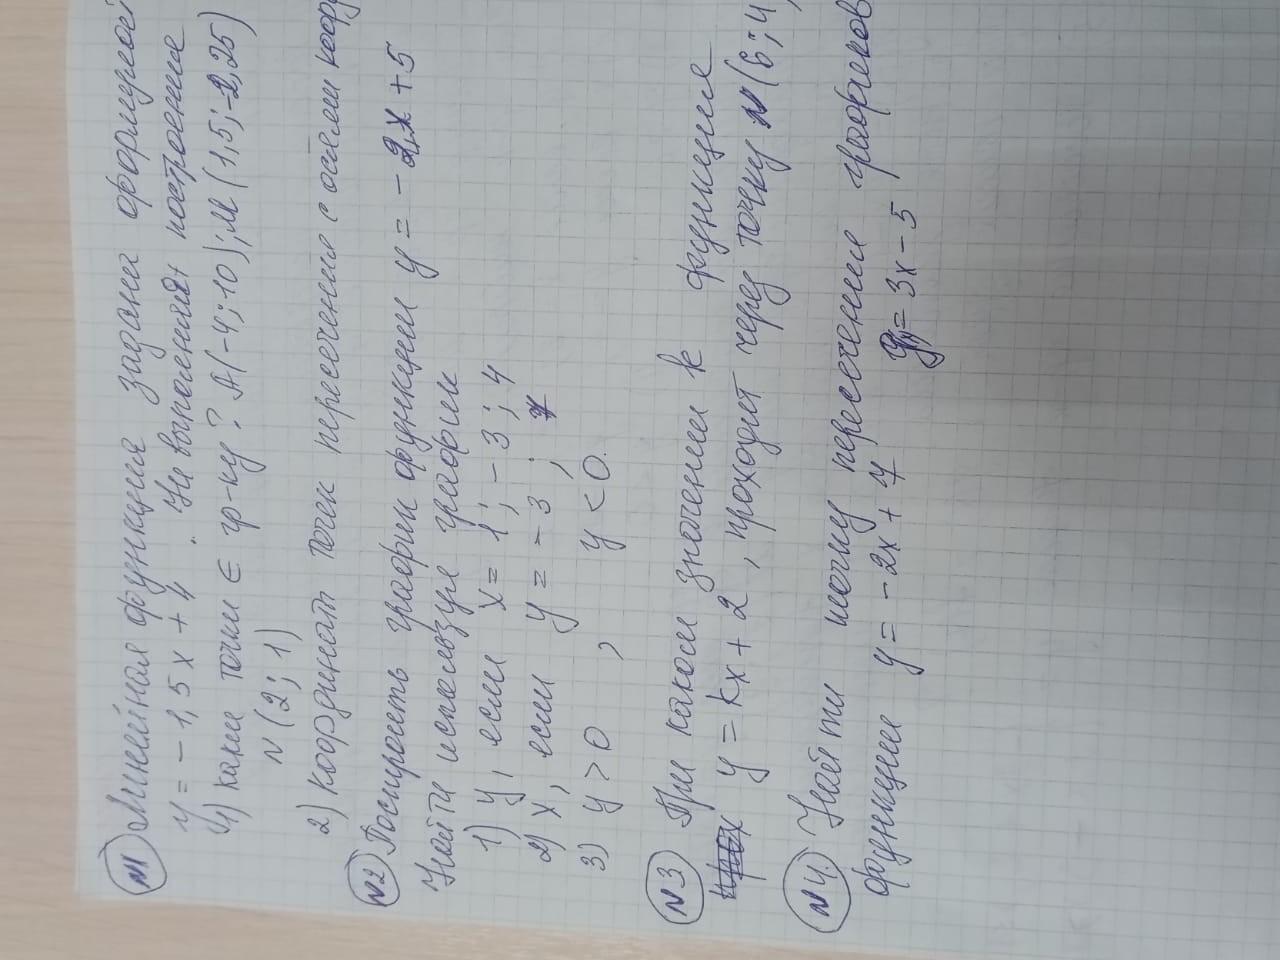 N1 Линейная функция задана формулой
y = -1,5x + 4 . Не выполняя построение
1) какие точки ∈ гр-ку? A(-4;10); M(1,5;-2,25)
N(2;1)
2) Координат точек пересечения с осями коор
N2 Построить график функции y = -2x + 5
Найти используя график
1) y, если x = 1; -3; 4
2) x, если y = -3;
3) y > 0 , y < 0.
N3 При каком значении k функция
y = kx + 2, проходит через точку N(6;4
N4. Найти точку пересечения графиков
функции y = -2x + 7 y = 3x - 5